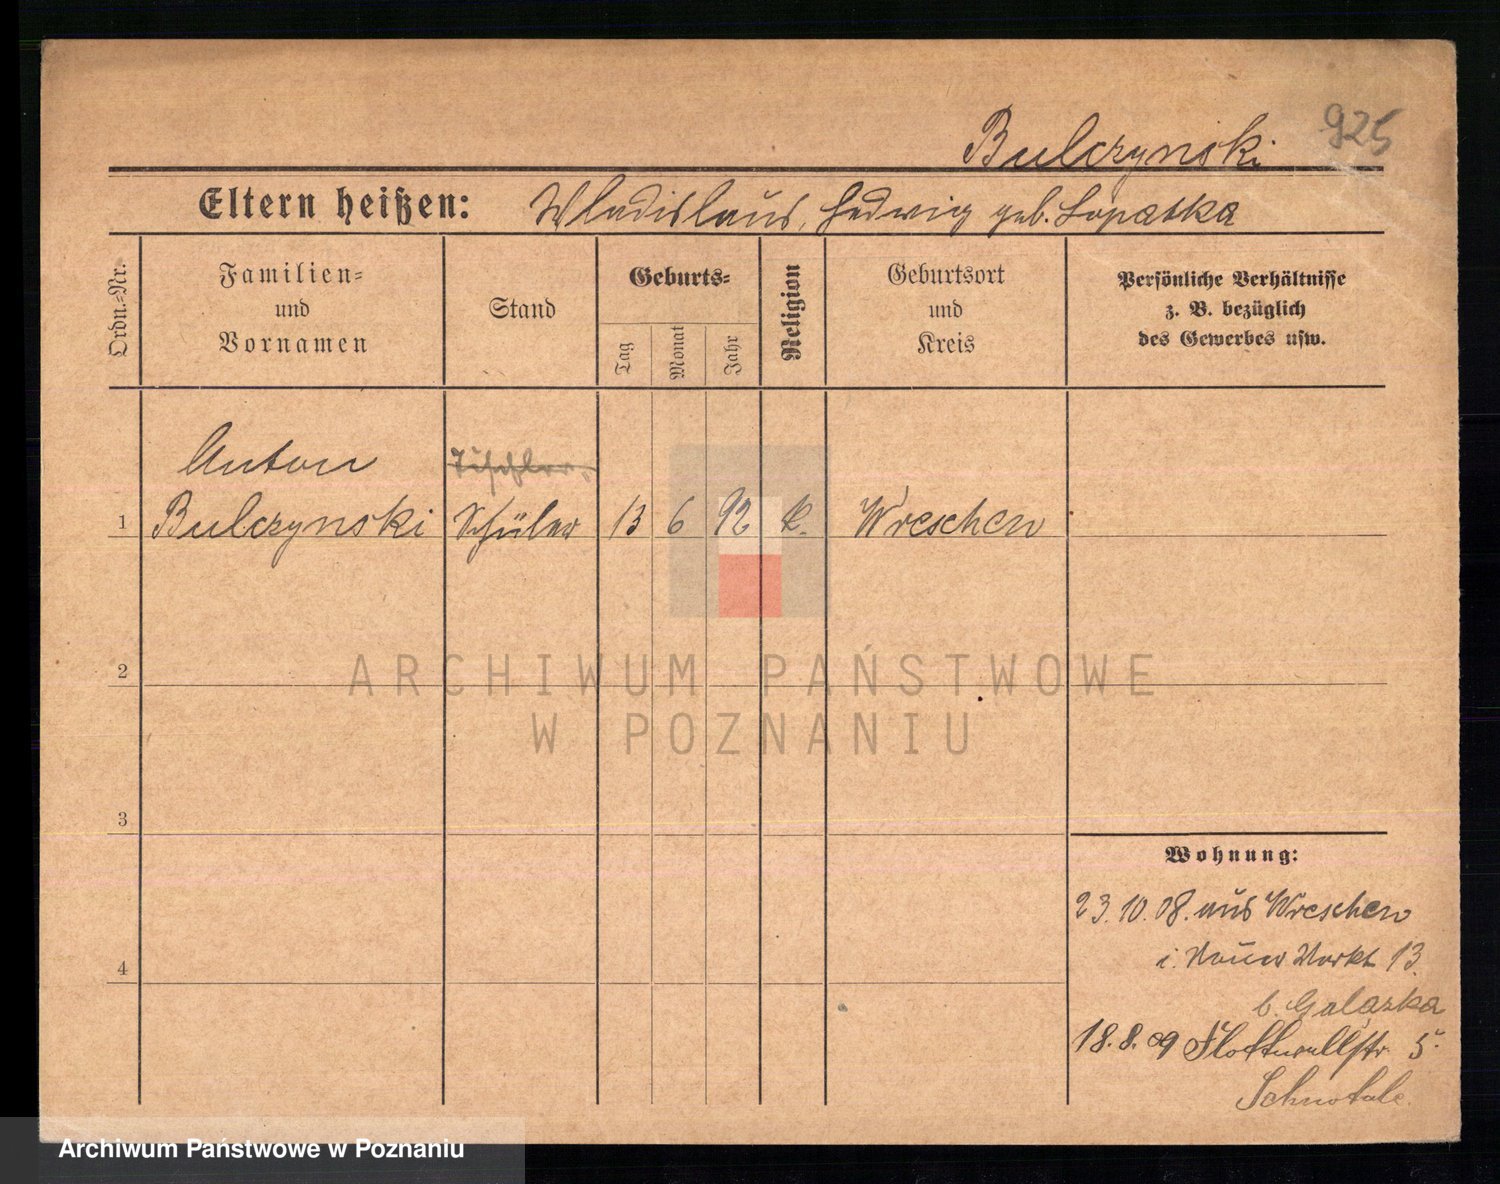 925
Bulczynski
Eltern heißen: Wladislaus, Hedwig geb. Lopatka
Ordn.=Nr.
Familien= und Vornamen
Stand
Geburts=
Tag
Monat
Jahr
Religion
Geburtsort und Kreis
Persönliche Verhältnisse
z. B. bezüglich
des Gewerbes usw.
Anton Tischler
1 Bulczynski Schüler 13 6 92 k. Wreschen
2
ARCHIWUM PAŃSTWOWE
W POZNANIU
3
Wohnung:
23.10.08. aus Wreschen
4
i. Neuer Markt 13
b. Galązka
18.8.09 Flottwellstr. 5
Archiwum Państwowe w Poznaniu